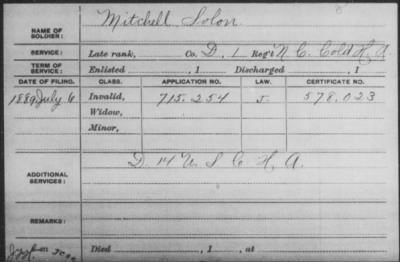 NAME OF SOLDIER: Mitchell Solon
SERVICE: Late rank, Co. D, 1 Reg't N. C. Cold H. A.
TERM OF SERVICE: Enlisted , 1 Discharged , 1
DATE OF FILING. CLASS. APPLICATION NO. LAW. CERTIFICATE NO.
1889 July 6 Invalid, 715.254 J. 578.023
Widow,
Minor,
ADDITIONAL SERVICES: D 14 U S C H A.
REMARKS:
Died , 1 , at